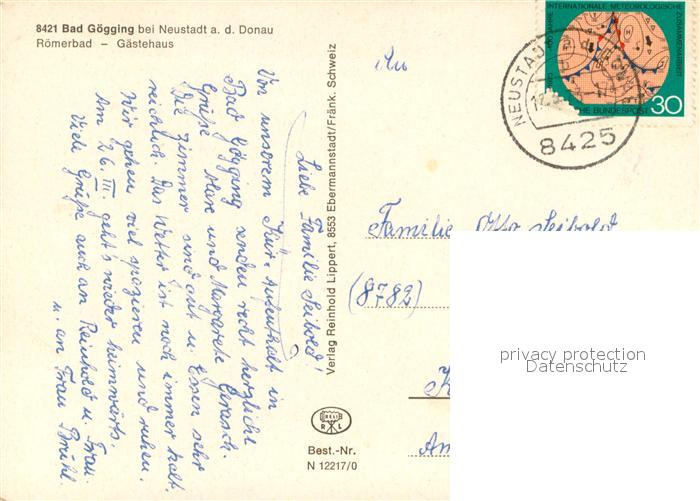 8421 Bad Gögging bei Neustadt a. d. Donau
Römerbad – Gästehaus
Liebe Familie Seibold!
Von unserem Kur-Aufenthalt in
Bad Gögging senden recht herzliche
Grüße Max und Margarete
Die Zimmer sind gut u. Essen sehr
reichlich. Das Wetter ist noch immer kalt.
Wir gehen viel spazieren und ruhen.
Am 26. III. geht's wieder heimwärts.
Viele Grüße auch an Reinhold u. Frau
u. an Frau Brühl.
Verlag Reinhold Lippert, 8553 Ebermannstadt/Fränk. Schweiz
RELI
R L
Best.-Nr.
N 12217/0
INTERNATIONALE METEOROLOGISCHE
ZUSAMMENARBEIT
100 JAHRE
1973
HE BUNDESPOST
30
NEUSTADT a. d.
8425
An
Familie Otto Seibold
(8782)
K
Am
privacy protection
Datenschutz